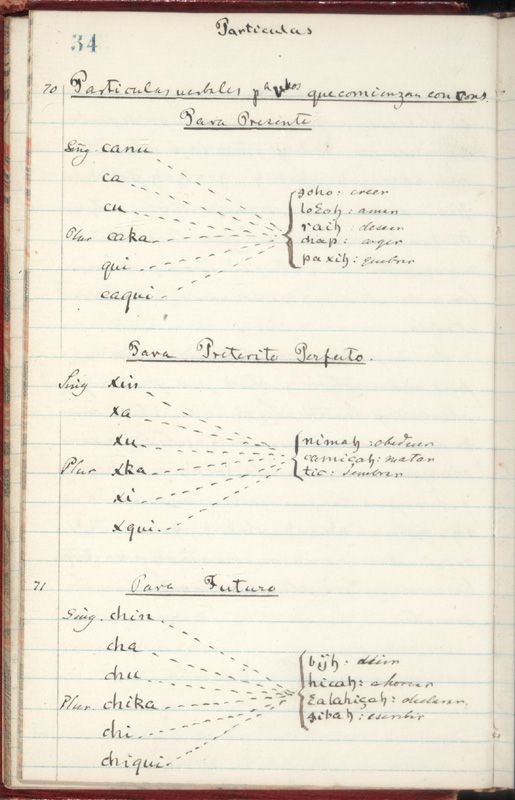 Particulas
34
70 Particulas verbales pa vbos que comienzan con cons.
Para Presente
Sing canu
ca
cu
Plur caka
qui
caqui
goho: creer
loεoh: amar
raih: desear
chap: coger
paxih: quebrar
Para Preterito Perfecto.
Sing xin
xa
xu
Plur xka
xi
xqui
nimah: obedecer
camiçah: matar
tic: sembrar
71 Para Futuro
Sing. chin
cha
chu
Plur. chika
chi
chiqui
bijh: decir
hicah: ahorcar
εalahiçah: declarar
gibah: escribir